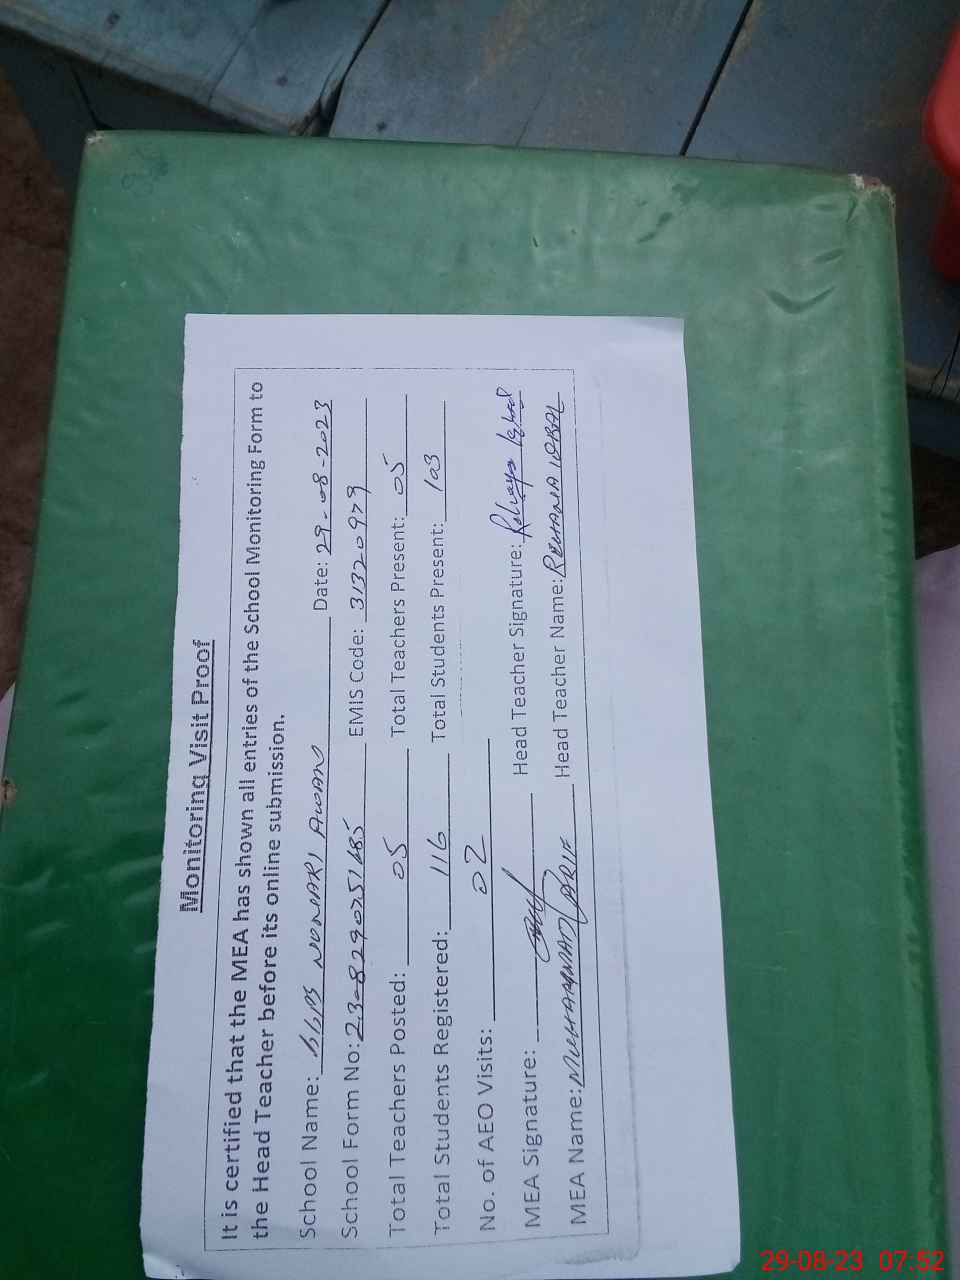 Monitoring Visit Proof
It is certified that the MEA has shown all entries of the School Monitoring Form to
the Head Teacher before its online submission.
School Name: NONARI AWAN Date: 29-08-2023
School Form No: EMIS Code: 31320979
Total Teachers Posted: 05 Total Teachers Present: 05
Total Students Registered: 116 Total Students Present: 103
No. of AEO Visits: 02
MEA Signature: Head Teacher Signature:
MEA Name: MUHAMMAD ARIF Head Teacher Name: REHANA IQBAL
29-08-23 07:52